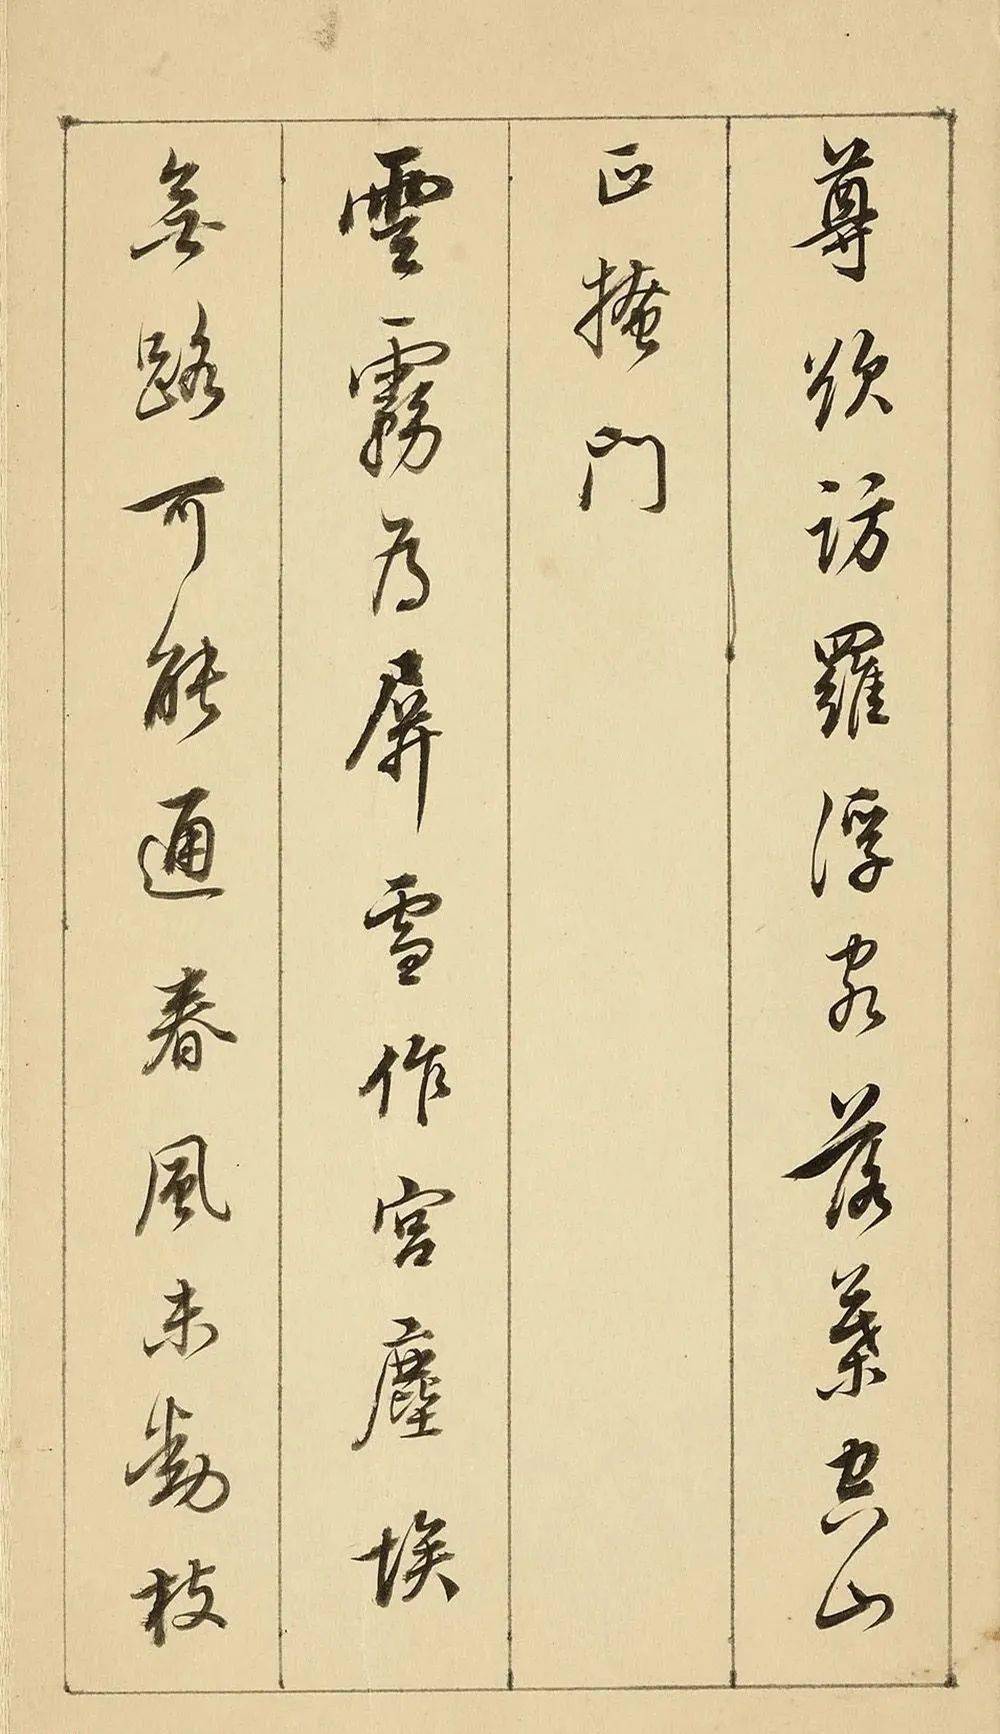 尊欲訪羅浮客落葉空山
正掩門
雲霧為屏雪作宮塵埃
無路可能通春風未動枝